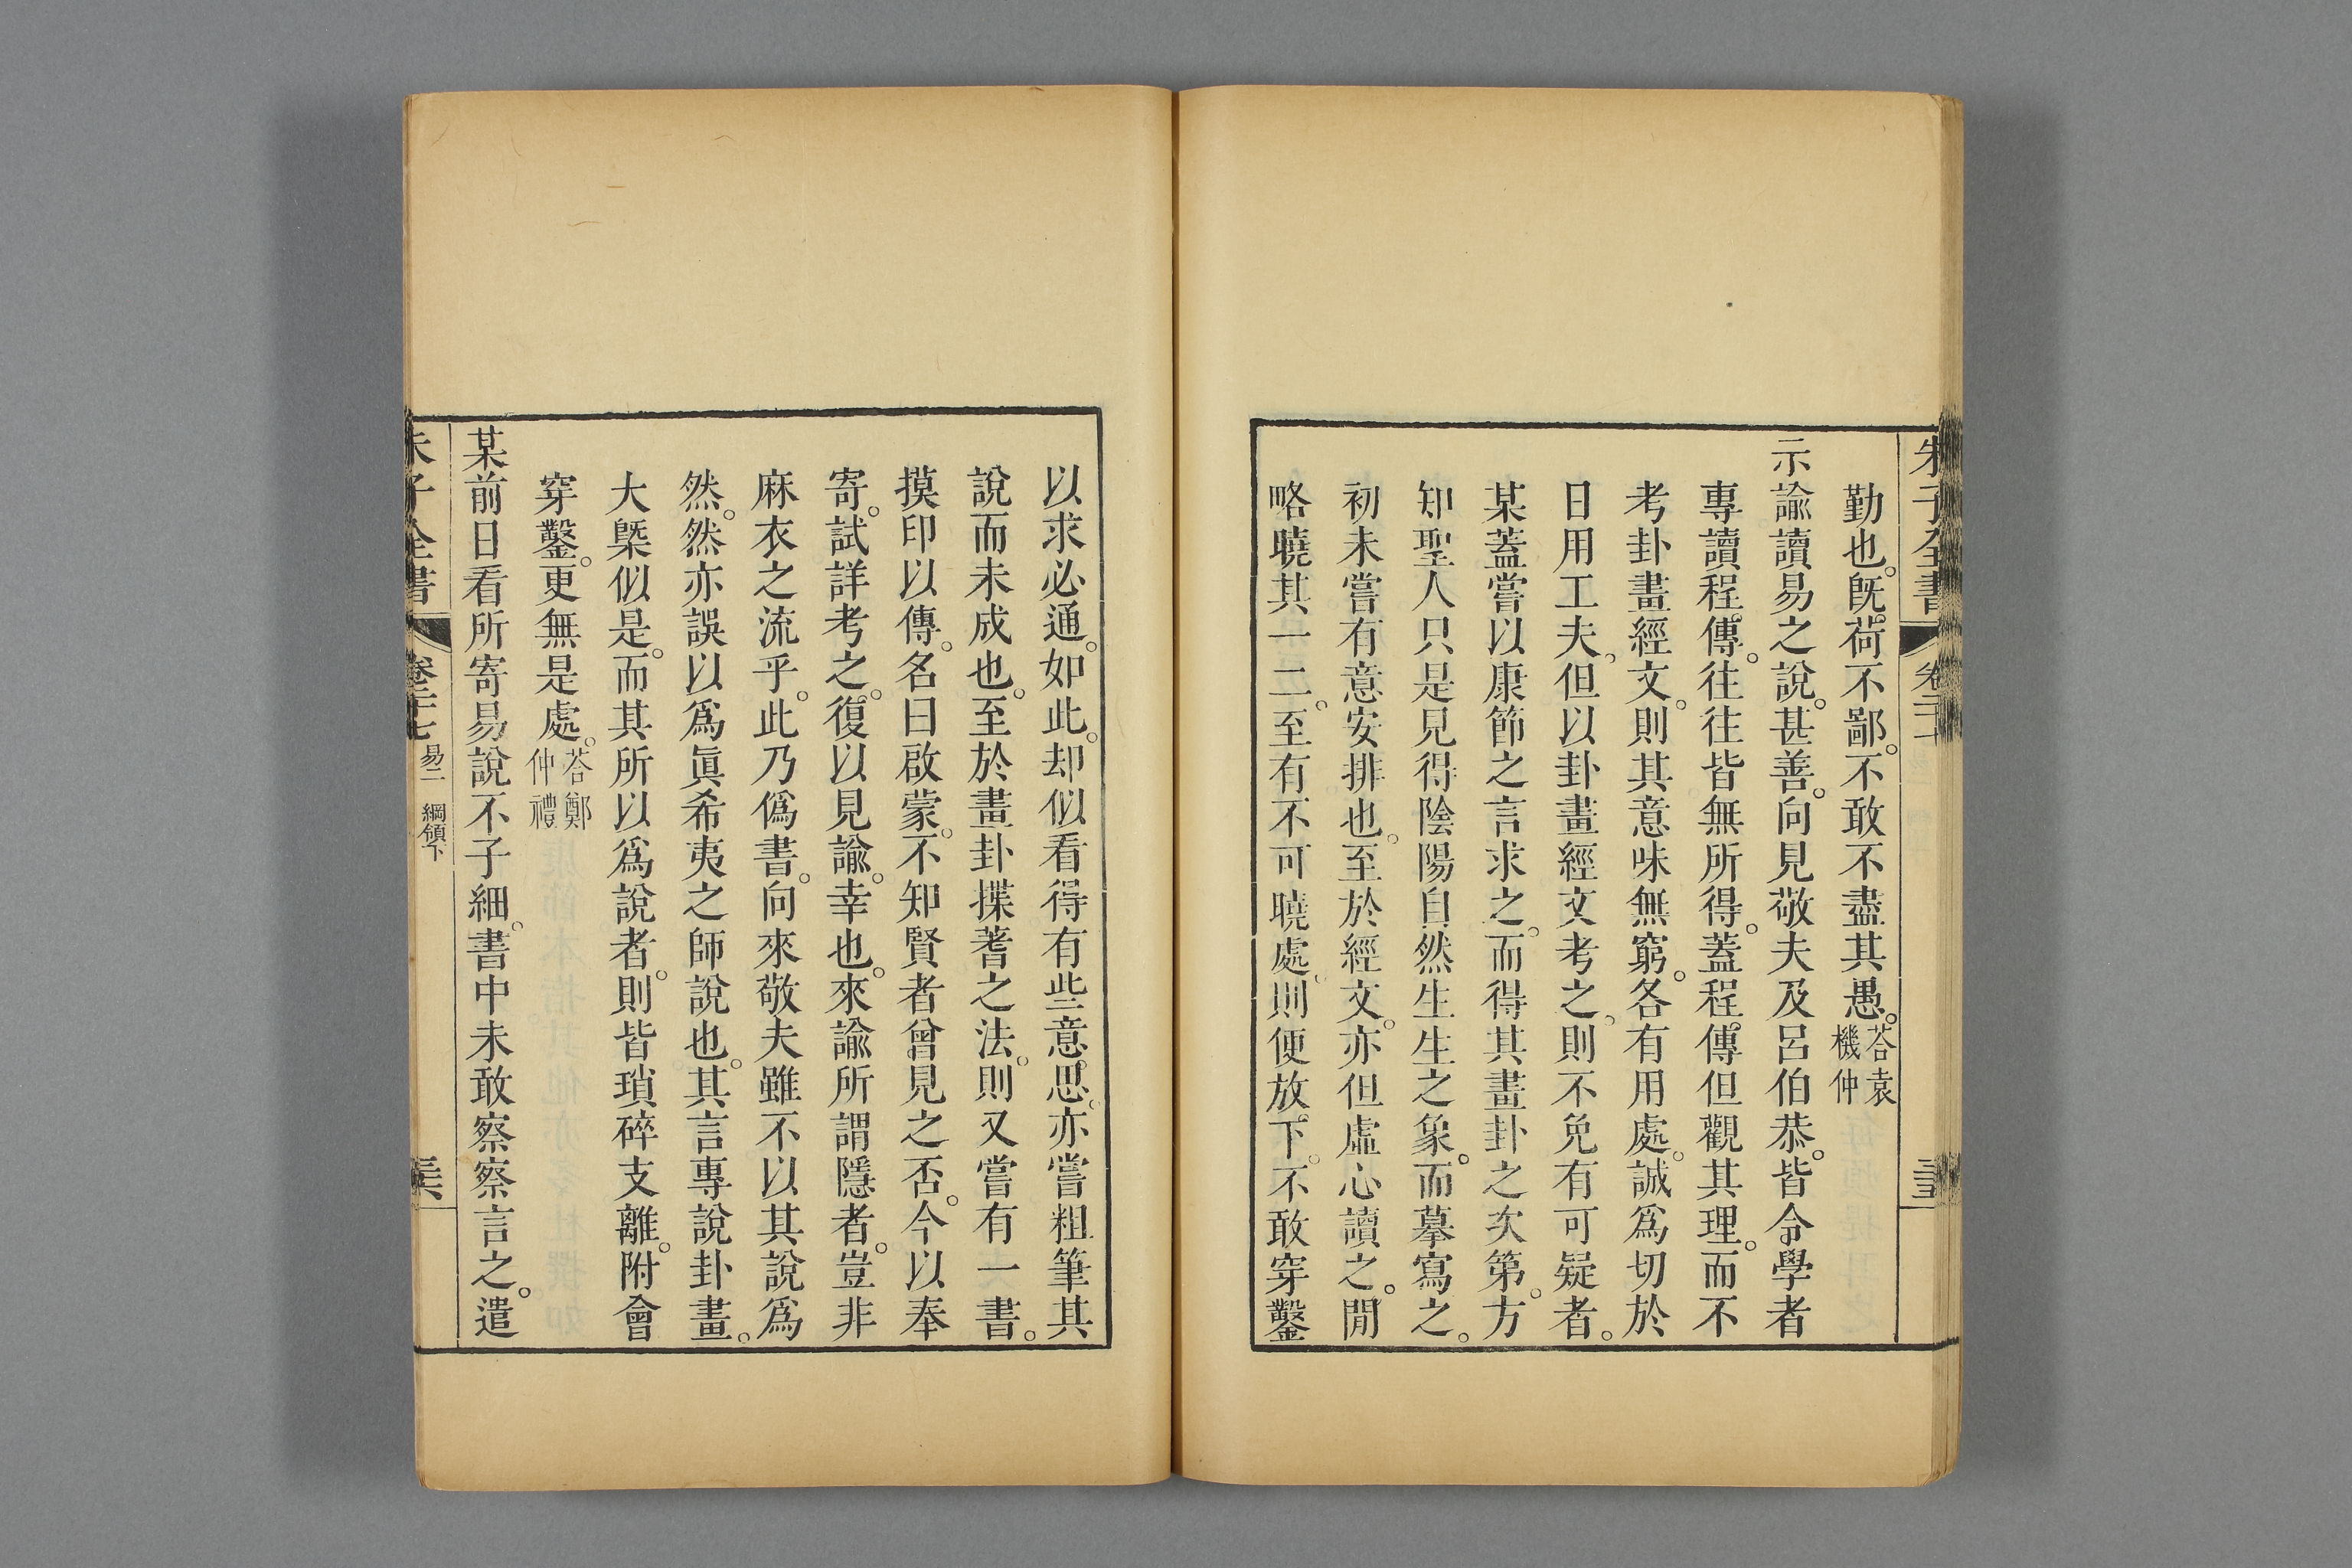 朱子全書 卷二十
勤也。旣荷不鄙。不敢不盡其愚。荅袁機仲
示諭讀易之說。甚善。向見敬夫及呂伯恭。皆令學者
專讀程傳。往往皆無所得。蓋程傳但觀其理。而不
考卦畫經文。則其意味無窮。各有用處。誠爲切於
日用工夫。但以卦畫經文考之。則不免有可疑者。
某蓋嘗以康節之言求之。而得其畫卦之次第。方
知聖人只是見得陰陽自然生生之象。而摹寫之。
初未嘗有意安排也。至於經文。亦但虛心讀之。閒
略曉其一二。至有不可曉處。則便放下。不敢穿鑿
以求必通。如此。却似看得有些意思。亦嘗粗筆其
說而未成也。至於畫卦揲蓍之法。則又嘗有一書。
摸印以傳。名曰啟蒙。不知賢者曾見之否。今以奉
寄。試詳考之。復以見諭。幸也。來諭所謂隱者。豈非
麻衣之流乎。此乃僞書。向來敬夫雖不以其說爲
然。然亦誤以爲眞希夷之師說也。其言專說卦畫。
大槩似是。而其所以爲說者。則皆瑣碎支離。附會
穿鑿。更無是處。荅鄭仲禮
某前日看所寄易說不子細。書中未敢察察言之。遣
朱子全書 卷二十七 易二 綱領下 三六